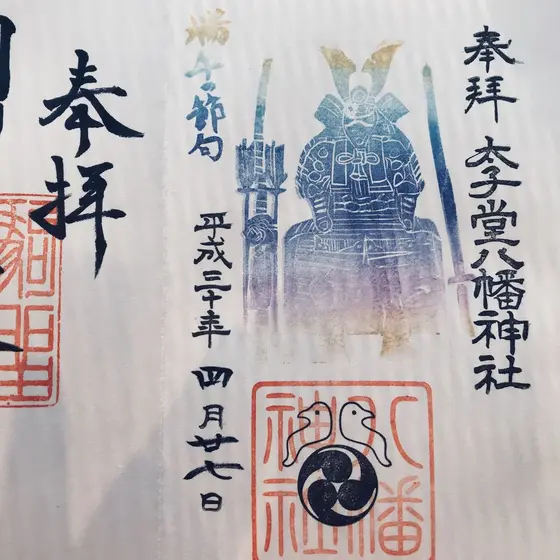 奉拝 太子堂八幡神社
端午の節句
平成三十年 四月廿七日
八幡
神社
奉拝